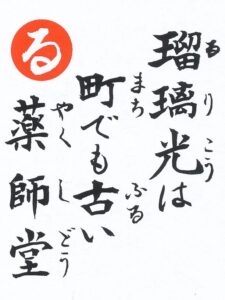 瑠璃光は
るりこう
町でも古い
まちふる
薬師堂
やくしどう
る